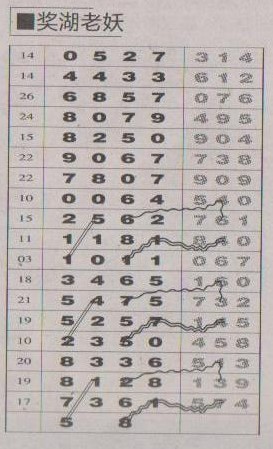 ■奖湖老妖
14 0 5 2 7 3 1 4
14 4 4 3 3 6 1 2
26 6 8 5 7 0 7 6
24 8 0 7 9 4 9 5
15 8 2 5 0 9 0 4
22 9 0 6 7 7 3 8
22 7 8 0 7 9 0 9
10 0 0 6 4 5 4 0
15 2 5 6 2 7 6 1
11 1 1 8 1 8 4 0
03 1 0 1 1 0 6 7
18 3 4 6 5 1 6 0
21 5 4 7 5 7 3 2
19 5 2 5 7 1 4 5
10 2 3 5 0 4 5 8
20 8 3 3 6 5 1 3
19 8 1 2 8 1 3 9
17 7 3 6 1 5 7 4
5 8